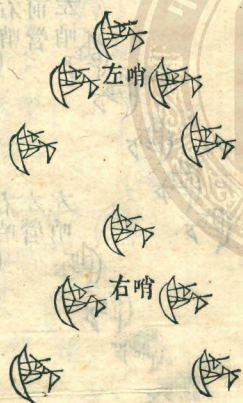 左哨
右哨